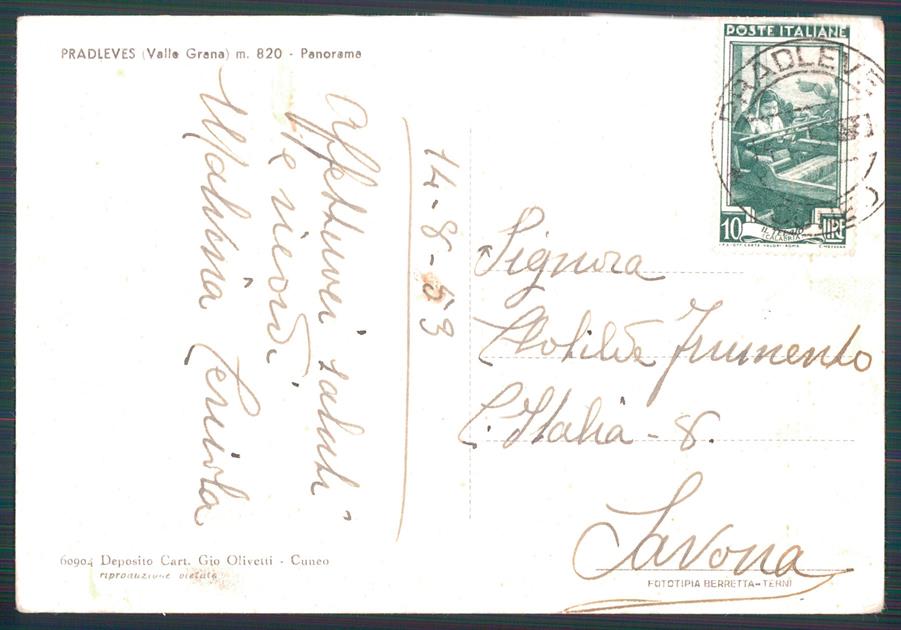 PRADLEVES (Valle Grana) m. 820 - Panorama
POSTE ITALIANE
PRADLEVE
10 LIRE
CALABRIA
I.P.S. OFF. CARTE VALORI - ROMA
14-8-53
Affettuosi saluti
e ricordi
Malvina
Signora
Clotilde Frumento
C. Italia - 8.
Savona
60904 Deposito Cart. Gio Olivetti - Cuneo
riproduzione vietata
FOTOTIPIA BERRETTA - TERNI